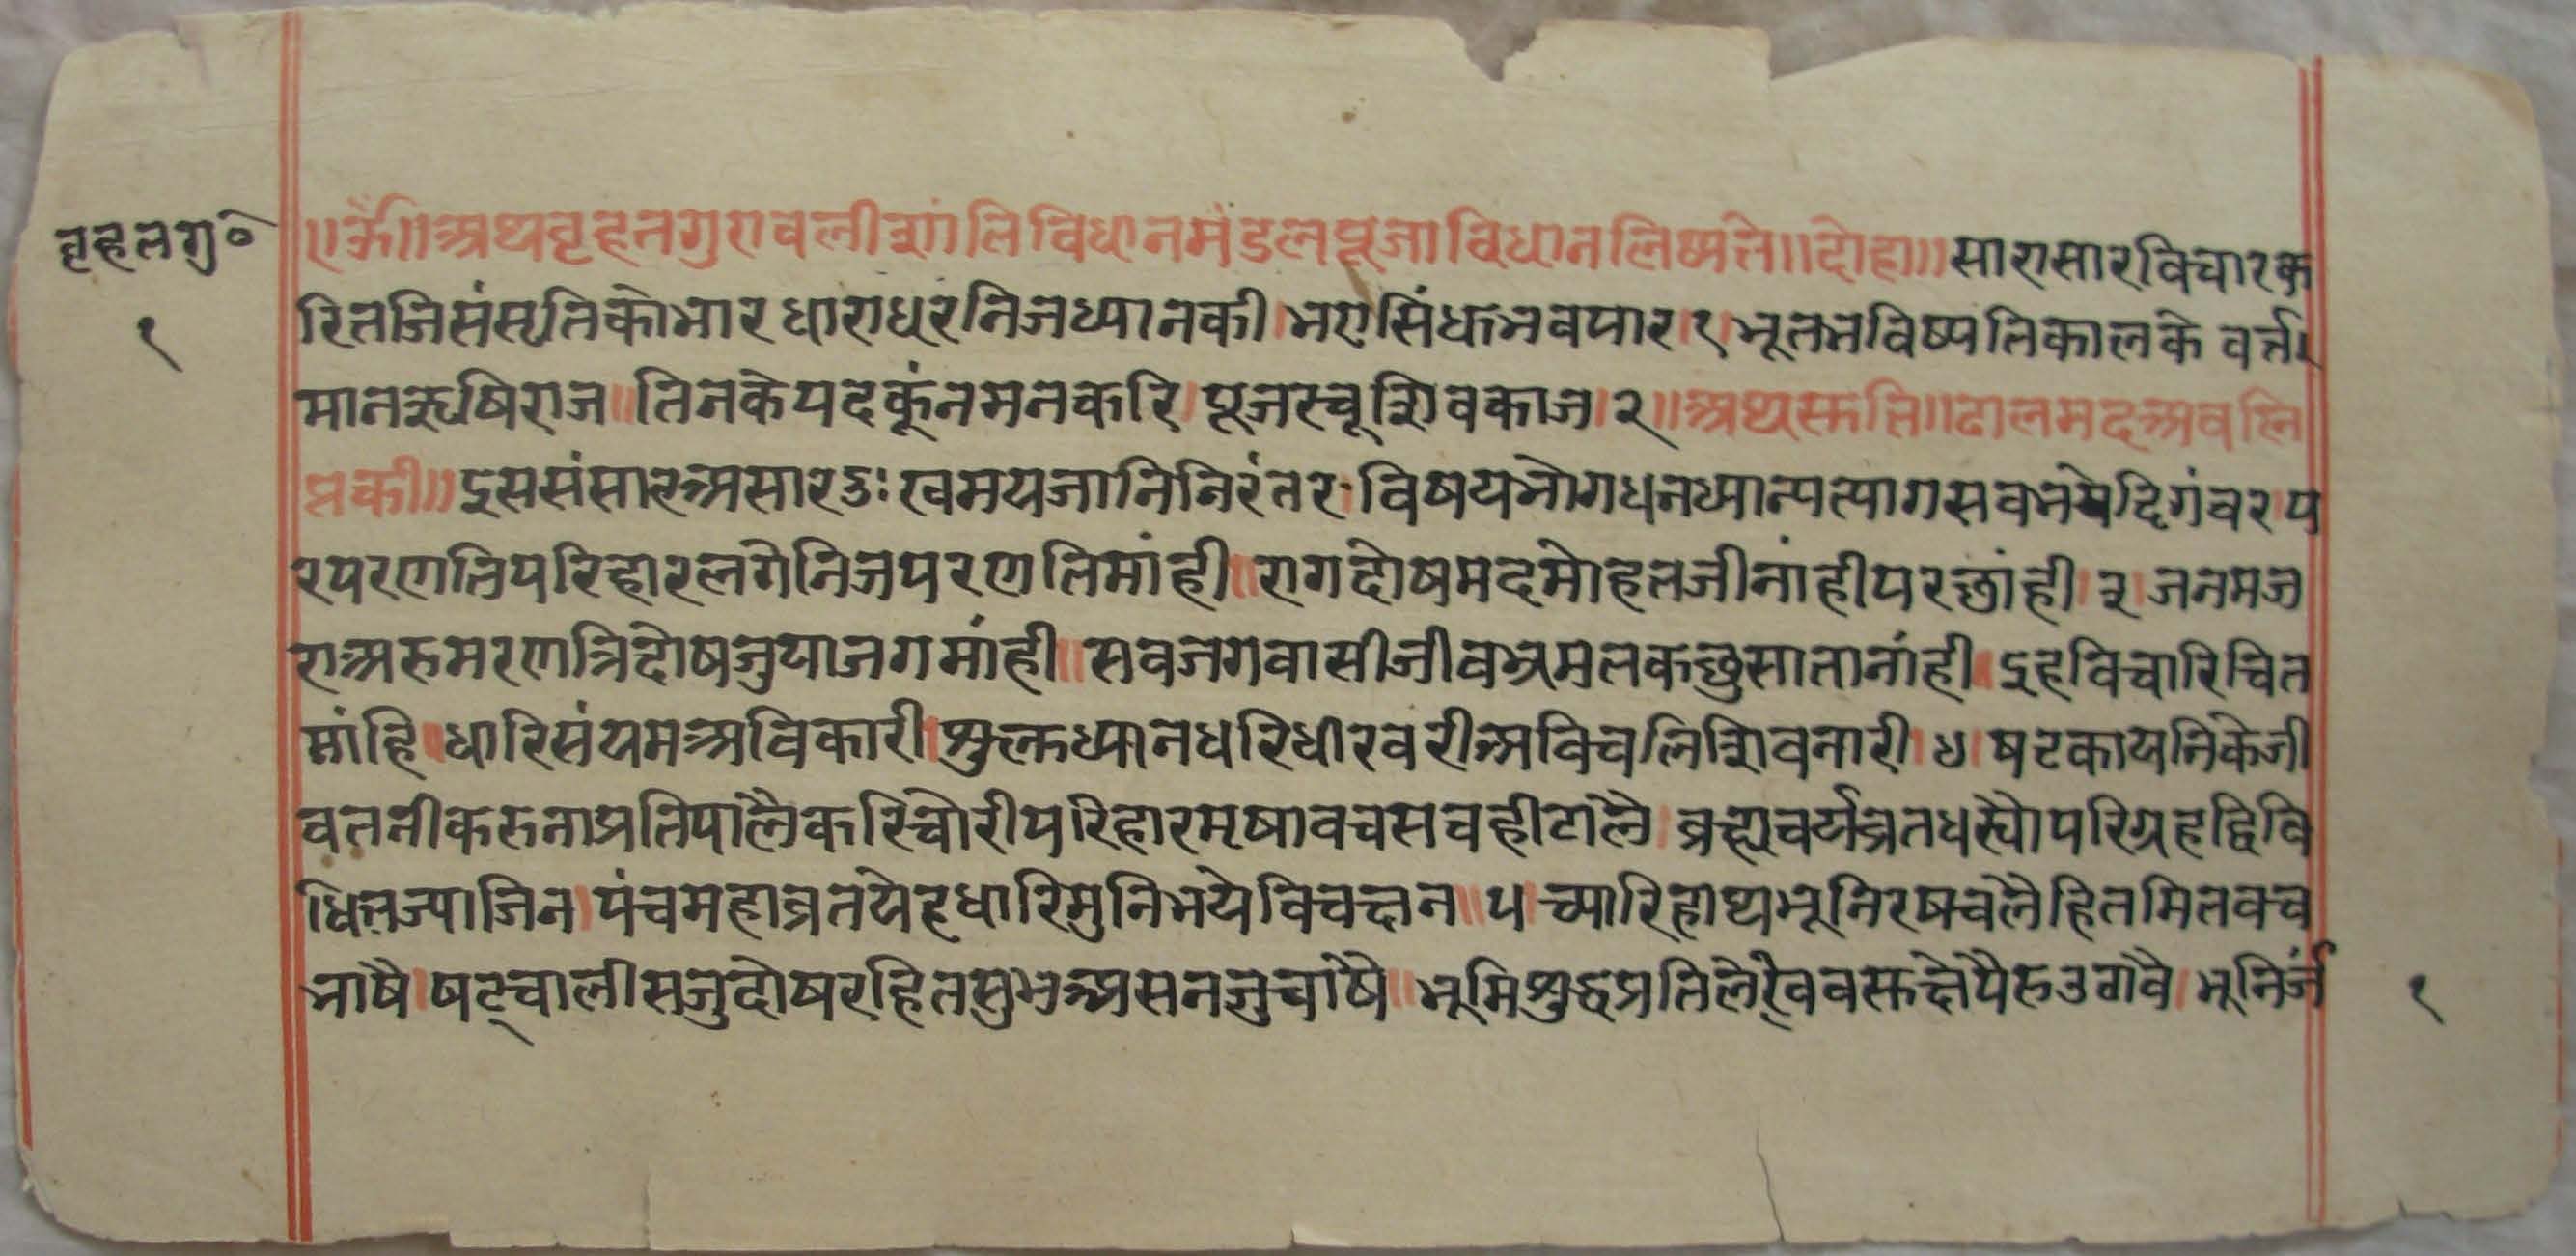 वृहतगु०
१
॥ॐ॥अथवृहतगुरावलीशांतिविधानमंडलपूजाविधानलिष्यते॥दोहा॥सारासारविचारक
रितजिसंसृतिकोभारधाराधरनिजध्यानकी।भएसिंधभवपार।१।भूतभविष्यतिकालके वर्त्त
मानऋषिराज॥तिनकेपदकूंनमनकरि।पूजरचूशिवकाज।२॥अथस्तुति॥ढालमदअवलि
प्तकी॥इससंसारअसारदुःखमयजानिनिरंतर।विषयभोगधनध्यान्यत्यागसवभयेदिगंवर।प
रपरणतिपरिहारलगेनिजपरणतिमांही॥रागदोषमदमोहतजीनांहीपरछांही।३।जनमज
राअरुमरणत्रिदोषजुयाजगमांही॥सवजगवासीजीवभ्रमतकछुसातानांही॥इहविचारिचित
मांहि॥धारिसंयमअविकारी।शुक्लध्यानधरिधीरवरीअविचलिशिवनारी।४।षटकायनिकेजी
वतनीकरुनाप्रतिपालैकरिचोरीपरिहारमृषावचसवहीटालै।ब्रह्मचर्यव्रतधर्‍यौपरिग्रहद्विवि
धितज्याजिन।पंचमहाव्रतयेहधारिमुनिभयेविचक्षन॥५।च्यारिहाथभूनिरषचलैहितमितवच
भाषै।षट्चालीसजुदोषरहितसुभअसनजुचाषै॥भूमिशुद्धप्रतिलेखिवस्तक्षेपैरुउठावै।भूनिर्जं
१